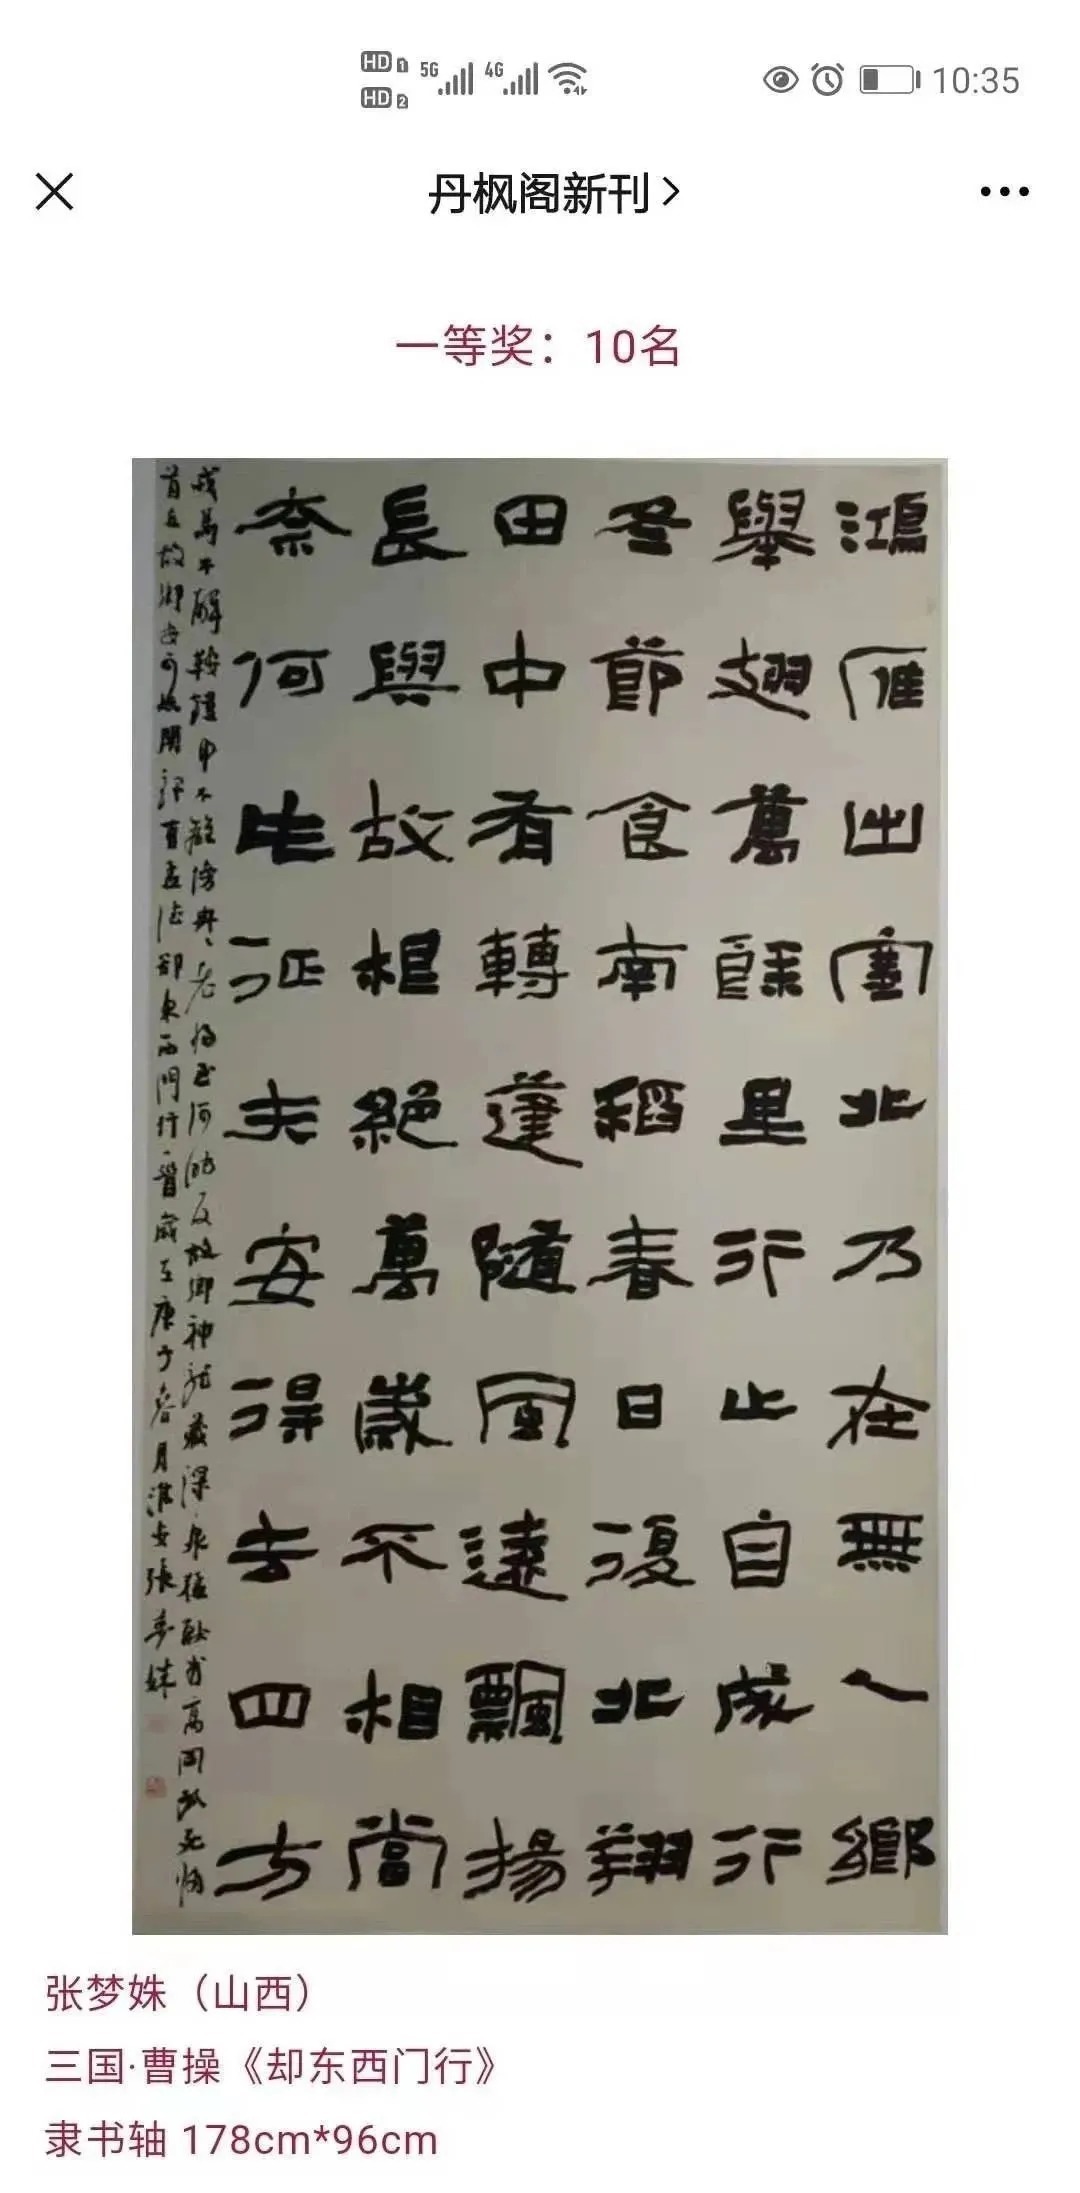 HD 1 5G 4G 10:35
HD 2
丹枫阁新刊
一等奖：10名
鴻雁出塞北乃在無人鄉
舉翅萬餘里行止自成行
冬節食南稻春日復北翔
田中有轉蓬隨風遠飄揚
長與故根絕萬歲不相當
奈何此征夫安得去四方
戎馬不解鞍鎧甲不離傍冉冉老將至何時反故鄉神龍藏深泉猛獸步高岡狐死歸
首丘故鄉安可忘曹孟德卻東西門行一首歲在庚子春月張夢姝
张梦姝（山西）
三国·曹操《却东西门行》
隶书轴 178cm*96cm